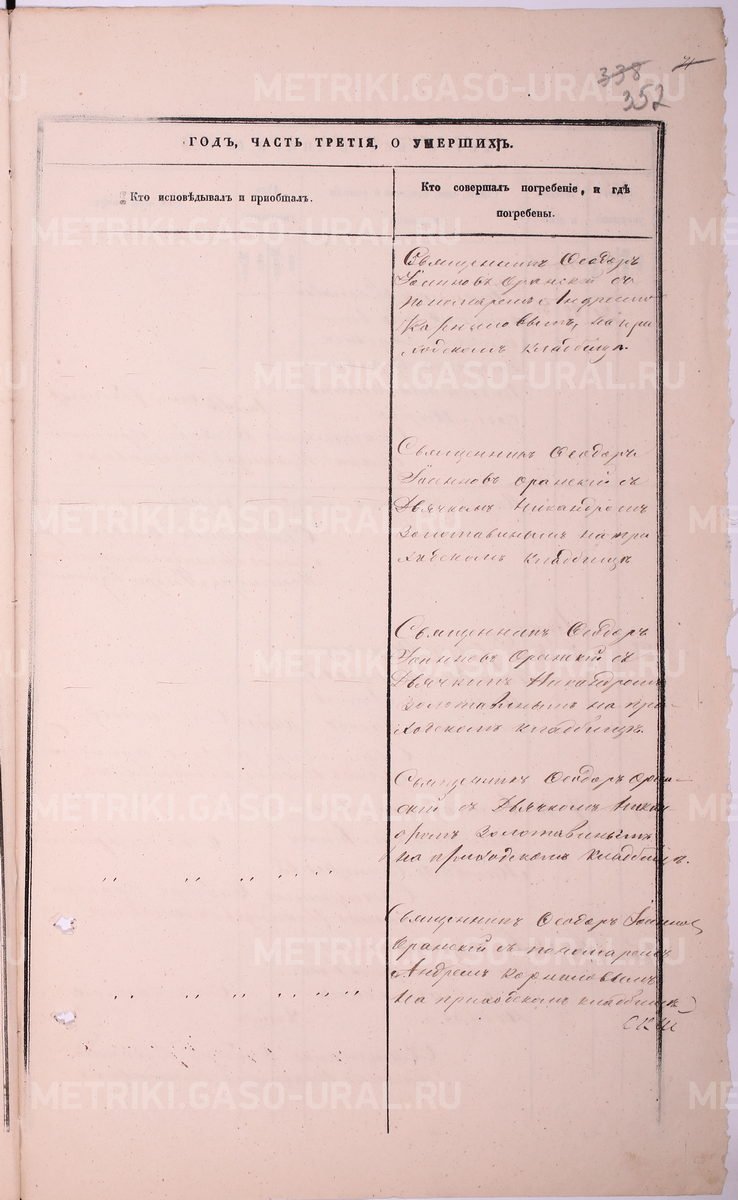 338
352
ГОДЪ, ЧАСТЬ ТРЕТІЯ, О УМЕРШИХЪ.
Кто исповѣдывалъ и пріобщалъ.
Кто совершалъ погребеніе, и гдѣ
погребены.
Священникъ Ѳеодоръ
Іоанновъ Оранскій съ
пономаремъ Андреемъ
Корниловымъ, на при
ходскомъ кладбищѣ.
Священникъ Ѳеодоръ
Іоанновъ Оранскій съ
Дьячкомъ Никандромъ
Золотавинымъ на при
ходскомъ кладбищѣ
Священникъ Ѳеодоръ
Іоанновъ Оранскій съ
Дьячкомъ Никандромъ
Золотавинымъ на при-
ходскомъ кладбищѣ.
Священникъ Ѳеодоръ Оран-
скій съ Дьячкомъ Никан
дромъ Золотавинымъ
на приходскомъ кладбищѣ.
Священникъ Ѳеодоръ Іоанновъ
Оранскій съ пономаремъ
Андреемъ Корниловымъ
на приходскомъ кладбищѣ
METRIKI.GASO-URAL.RU